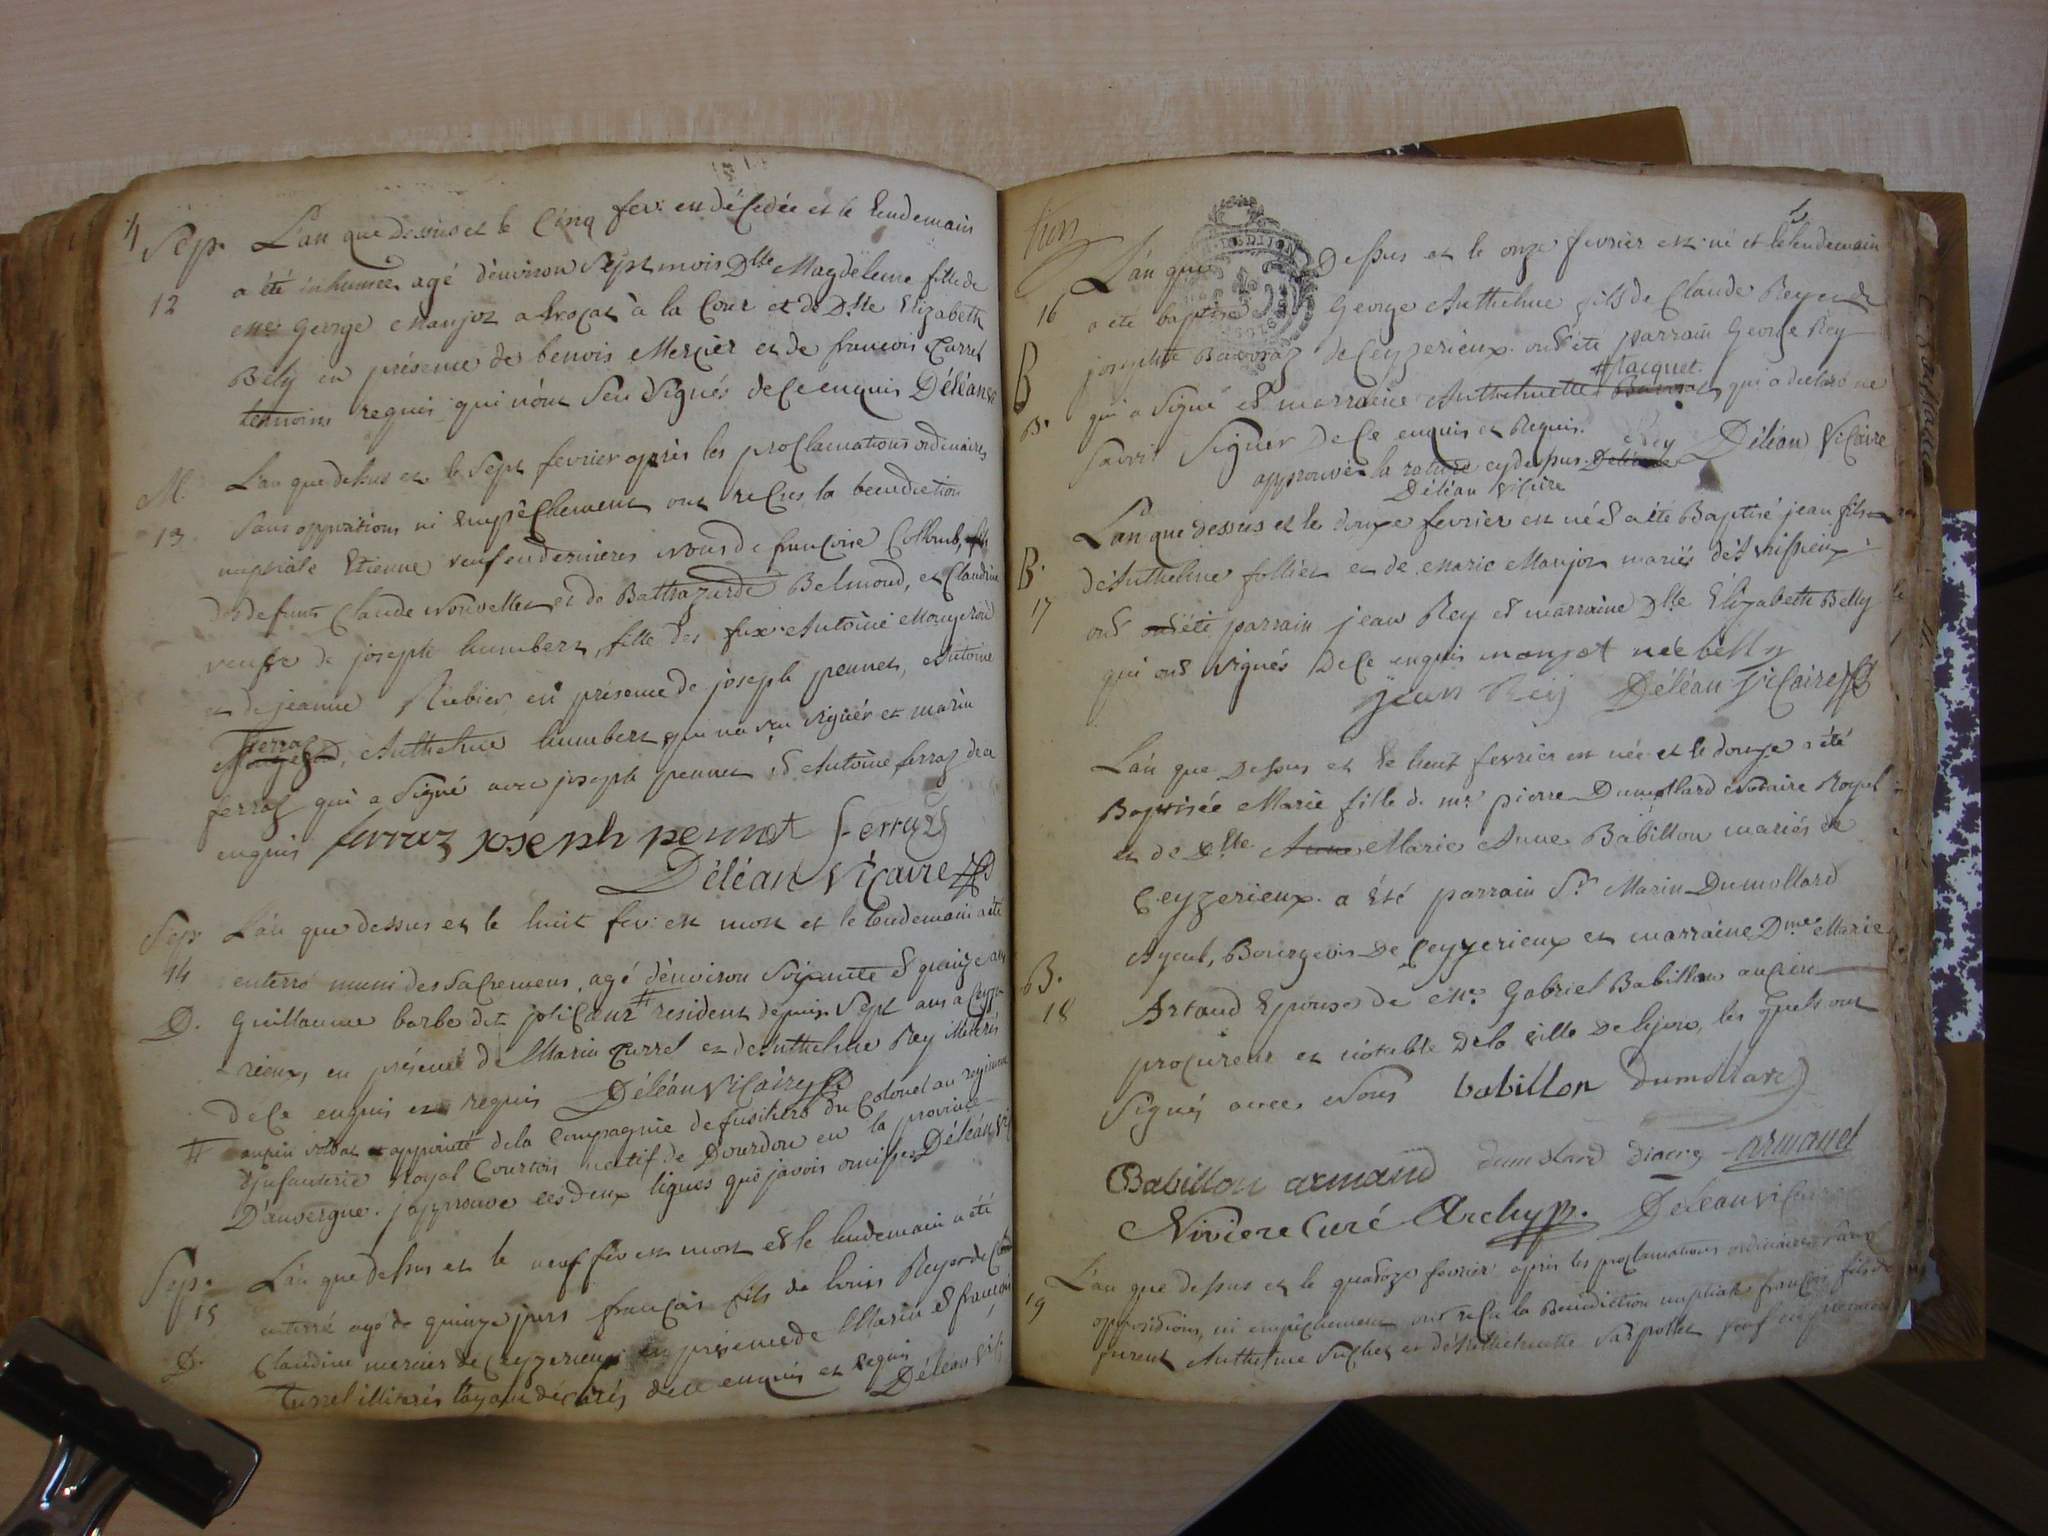 4
Sep. L'an que dessus et le Cinq fev: est décédée et le lendemain
12 a été inhumée, agé d'environ Sept mois Dlle Magdeleine fille de
Me George Manjot avocat à la Cour et de Dlle Elizabeth
Bely en présence de benoit Mercier et de francois Curret
temoins requis qui n'ont Seu Signés de Ce enquis Déléan
M. L'an que dessus et le Sept fevrier après les proclamations ordinaires
13 sans oppositions ni empêchement ont reçus la bénédiction
nuptiale Etienne veuf en dernieres de francoise Collomb, fils
des defunts Claude et de Balthazarde Belmond, et Claudine
veufve de joseph humbert, fille des feux Antoine
et de jeanne Rubier en présence de joseph pennet, Antoine
ferraz, Anthelme humbert qui na seu signér et marin
ferraz qui a Signé avec joseph pennet & Antoine ferraz de ce
enquis ferraz joseph pennet ferraz
Déléan Vicaire
Sep. L'an que dessus et le huit fev: est mort et le lendemain a été
14 enterré muni des saCremens, agé d'environ Soixante & quinze ans
D. Guillaume barbe dit joliCœur # resident depuis Sept ans a Ceyze-
rieux, en présence de Marin Curret et de Anthelme Rey illiterés
de Ce enquis et requis Déléan ViCaire
# ancien soldat appointé de la Compagnie de fusiliers du Colonel au regiment
d'jnfanterie Royal natif de en la province
D'auvergne. j'approuve ces deux lignes que j'avois omises Déléan vic
Sep. L'an que dessus et le neuf fev est mort & le lendemain a été
15 enterré agé de quinze jours francois fils de louis Rey et de
D. Claudine mercier de Ceyzerieux en présence de Marin & francois
Curret illiterés de ce enquis et requis Déléan vic
5
L'an que Dessus et le onze fevrier est né et le lendemain
16 a été baptisé George Anthelme fils de Claude Rey et de
B josephte de Ceyzerieux. ont été parrain George Rey
#Jacquet
B. qui a Signé & marraine Anthelmette qui a declaré ne
savoir Signer de Ce enquis et Requis. Rey Déléan ViCaire
approuvée la rature cy dessus
Déléan viCaire
L'an que dessus et le douze fevrier est né & a été Baptisé jean fils
B. de Anthelme follier et de Marie Manjot mariés
17 ont été parrain jean Rey & marraine Dlle Elizabeth Belly
qui ont signés de Ce enquis manjot née belly
jean Reÿ Déléan ViCaire
L'an que Dessus et le huit fevrier est née et le douze a été
Baptisée Marie fille de mr pierre Dumollard Notaire Royal
et de Dlle Anne Marie Anne Babillon mariés de
Ceyzerieux. a été parrain Sr Marin Dumollard
Ayeul, Bourgeois De Ceyzerieux et marraine Dme Marie
B. Artaud Epouse de Me Gabriel Babillon ancien
18 procureur et notable de la ville de lyon, les quels ont
Signés avec Nous babillon dumollard
Babillon armand dumolard diacre armand
Niviere Curé Archyp. Déléan viCaire
L'an que dessus et le quatorze fevrier après les proclamations ordinaires sans
19 oppositions, ni empêchement ont reçu la Benediction nuptiale francois fils de
Anthelme Suchet et de Anthelmette veuf en premieres